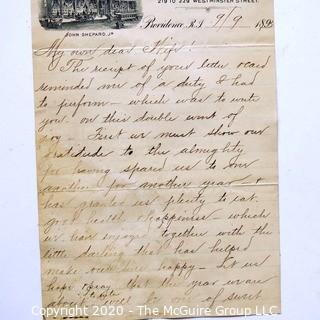 219 TO 229 WESTMINSTER STREET.
JOHN SHEPARD, Jr
Providence R.I. 9/9 189
My own dear Wife:
The receipt of your letter card
reminded me of a duty I had
to perform - which was to write
you on this double event of
joy - First we must show our
gratitude to the almighty
for having spared us to one
another for another year - &
has granted us plenty to eat.
good health & happiness - which
we have enjoyed together with the
little darling that has helped
make our life happy - Let us
hope & pray that the year we are
about to enter will be one of sweet
Copyright 2020 - The McGuire Group